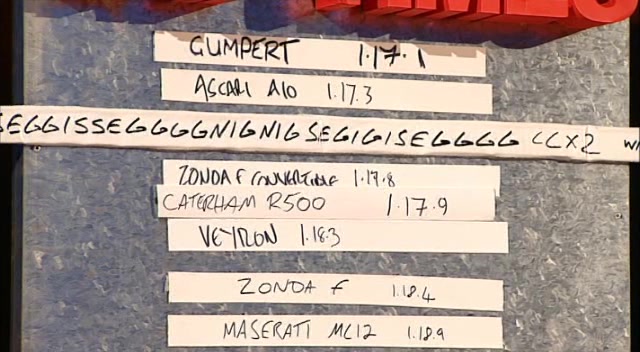 GUMPERT 1.17.1
ASCARI A10 1.17.3
EGGISSEGGGGNIGNIGSEGIGISEGGGG CCX2
ZONDA F CONVERTIBLE 1.17.8
CATERHAM R500 1.17.9
VEYRON 1.18.3
ZONDA F 1.18.4
MASERATI MC12 1.18.9